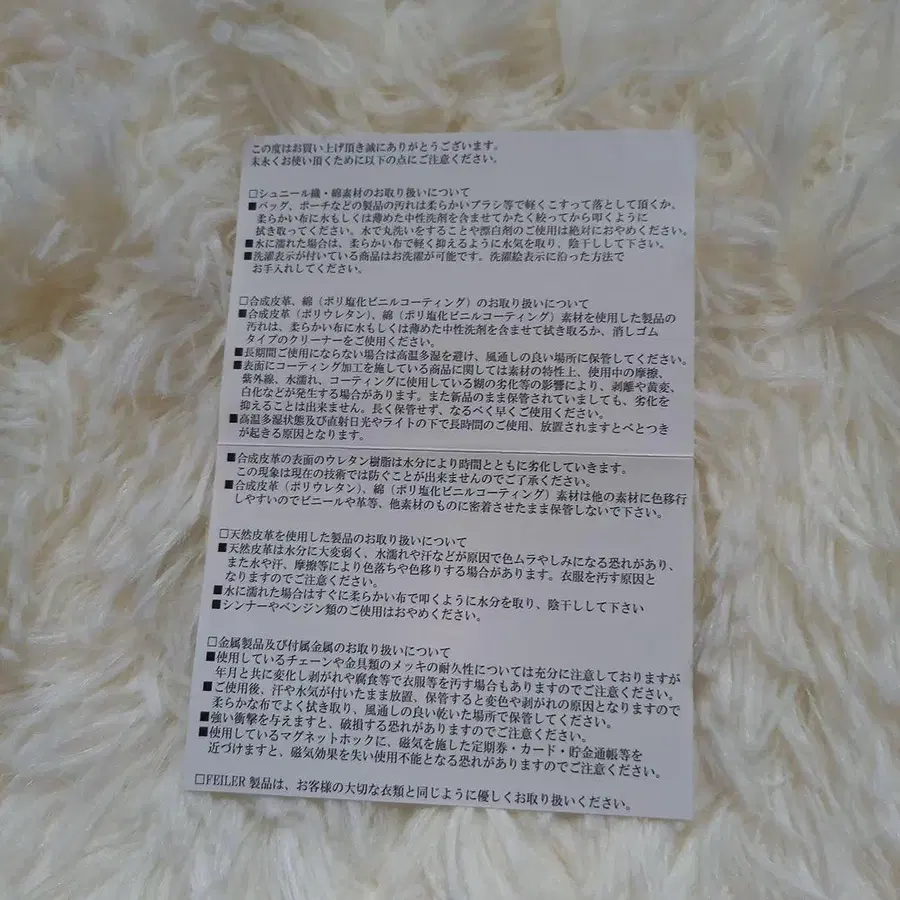 この度はお買い上げ頂き誠にありがとうございます。
末永くお使い頂くために以下の点にご注意ください。
□シュニール織・綿素材のお取り扱いについて
■バッグ、ポーチなどの製品の汚れは柔らかいブラシ等で軽くこすって落として頂くか、
柔らかい布に水もしくは薄めた中性洗剤を含ませてかたく絞ってから叩くように
拭き取ってください。水で丸洗いをすることや漂白剤のご使用は絶対におやめください。
■水に濡れた場合は、柔らかい布で軽く抑えるように水気を取り、陰干しして下さい。
■洗濯表示が付いている商品はお洗濯が可能です。洗濯絵表示に沿った方法で
お手入れしてください。
□合成皮革、綿（ポリ塩化ビニルコーティング）のお取り扱いについて
■合成皮革（ポリウレタン）、綿（ポリ塩化ビニルコーティング）素材を使用した製品の
汚れは、柔らかい布に水もしくは薄めた中性洗剤を含ませて拭き取るか、消しゴム
タイプのクリーナーをご使用ください。
■長期間ご使用にならない場合は高温多湿を避け、風通しの良い場所に保管してください。
■表面にコーティング加工を施している商品に関しては素材の特性上、使用中の摩擦、
紫外線、水濡れ、コーティングに使用している糊の劣化等の影響により、剥離や黄変、
白化などが発生する場合があります。また新品のまま保管されていましても、劣化を
抑えることは出来ません。長く保管せず、なるべく早くご使用ください。
■高温多湿状態及び直射日光やライトの下で長時間のご使用、放置されますとべとつき
が起きる原因となります。
■合成皮革の表面のウレタン樹脂は水分により時間とともに劣化していきます。
この現象は現在の技術では防ぐことが出来ませんのでご了承ください。
■合成皮革（ポリウレタン）、綿（ポリ塩化ビニルコーティング）素材は他の素材に色移行
しやすいのでビニールや革等、他素材のものに密着させたまま保管しないで下さい。
□天然皮革を使用した製品のお取り扱いについて
■天然皮革は水分に大変弱く、水濡れや汗などが原因で色ムラやしみになる恐れがあり、
また水や汗、摩擦等により色落ちや色移りする場合があります。衣服を汚す原因と
なりますのでご注意ください。
■水に濡れた場合はすぐに柔らかい布で叩くように水分を取り、陰干しして下さい
■シンナーやベンジン類のご使用はおやめください。
□金属製品及び付属金属のお取り扱いについて
■使用しているチェーンや金具類のメッキの耐久性については充分に注意しておりますが
年月と共に変化し剥がれや腐食等で衣服等を汚す場合もありますのでご注意ください。
■ご使用後、汗や水気が付いたまま放置、保管すると変色や剥がれの原因となりますので
柔らかな布でよく拭き取り、風通しの良い乾いた場所で保管してください。
■強い衝撃を与えますと、破損する恐れがありますのでご注意ください。
■使用しているマグネットホックに、磁気を施した定期券・カード・貯金通帳等を
近づけますと、磁気効果を失い使用不能となる恐れがありますのでご注意ください。
□FEILER 製品は、お客様の大切な衣類と同じように優しくお取り扱いください。